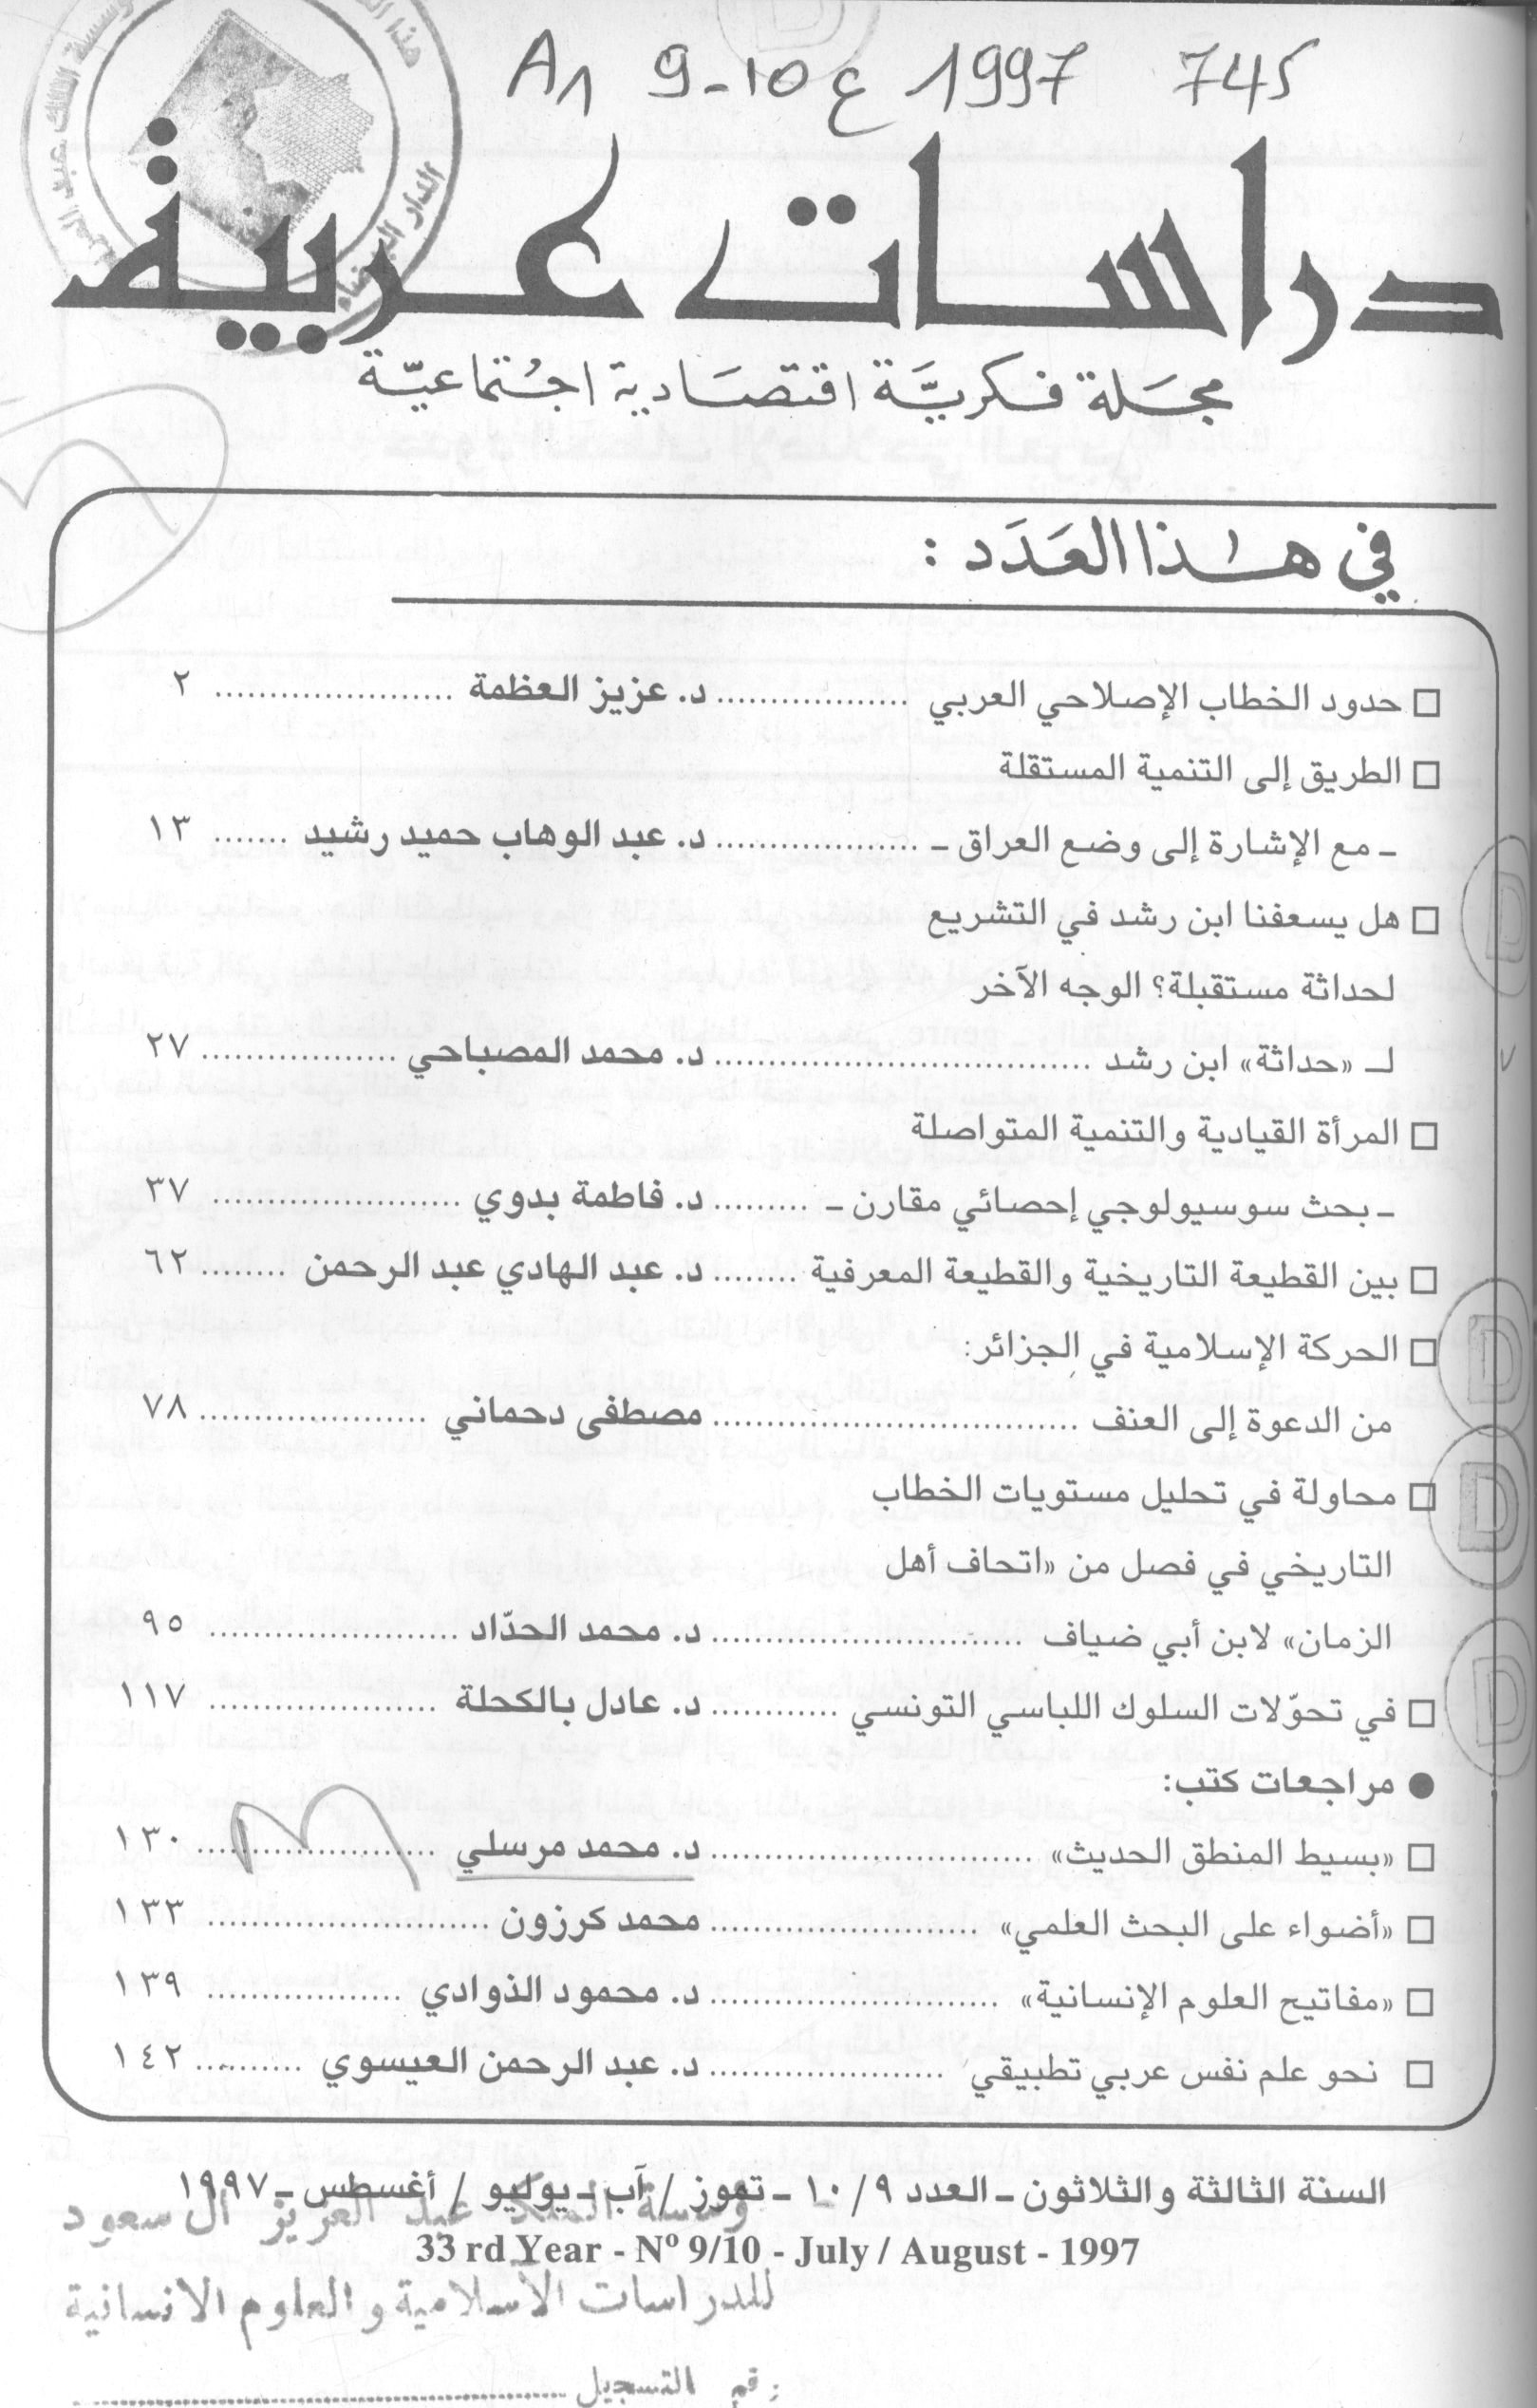 A1 9-10 ع 1997 745
دراسات عربية
مجلة فكريَّة اقتصَادية اجتماعيّة
في هٰذا العَدَد :
□ حدود الخطاب الإصلاحي العربي .................. د. عزيز العظمة ...................... ٢
□ الطريق إلى التنمية المستقلة
ـ مع الإشارة إلى وضع العراق ـ .................... د. عبد الوهاب حميد رشيد ....... ١٣
□ هل يسعفنا ابن رشد في التشريع
لحداثة مستقبلة؟ الوجه الآخر
لـ «حداثة» ابن رشد ................................... د. محمد المصباحي .................. ٢٧
□ المرأة القيادية والتنمية المتواصلة
ـ بحث سوسيولوجي إحصائي مقارن ـ ......... د. فاطمة بدوي ....................... ٣٧
□ بين القطيعة التاريخية والقطيعة المعرفية ........ د. عبد الهادي عبد الرحمن ........ ٦٢
□ الحركة الإسلامية في الجزائر:
من الدعوة إلى العنف .................................. مصطفى دحماني ..................... ٧٨
□ محاولة في تحليل مستويات الخطاب
التاريخي في فصل من «اتحاف أهل
الزمان» لابن أبي ضياف ............................. د. محمد الحدّاد ....................... ٩٥
□ في تحوّلات السلوك اللباسي التونسي ............ د. عادل بالكحلة ..................... ١١٧
● مراجعات كتب:
□ «بسيط المنطق الحديث» .............................. د. محمد مرسلي ...................... ١٣٠
□ «أضواء على البحث العلمي» ......................... محمد كرزون .......................... ١٣٣
□ «مفاتيح العلوم الإنسانية» ........................... د. محمود الذوادي .................. ١٣٩
□ نحو علم نفس عربي تطبيقي ...................... د. عبد الرحمن العيسوي .......... ١٤٢
السنة الثالثة والثلاثون ـ العدد ٩/١٠ ـ تموز / آب ـ يوليو / أغسطس ـ ١٩٩٧
عبد العزيز آل سعود
33 rd Year - Nº 9/10 - July / August - 1997
للدراسات الاسلامية والعلوم الانسانية
رقم التسجيل